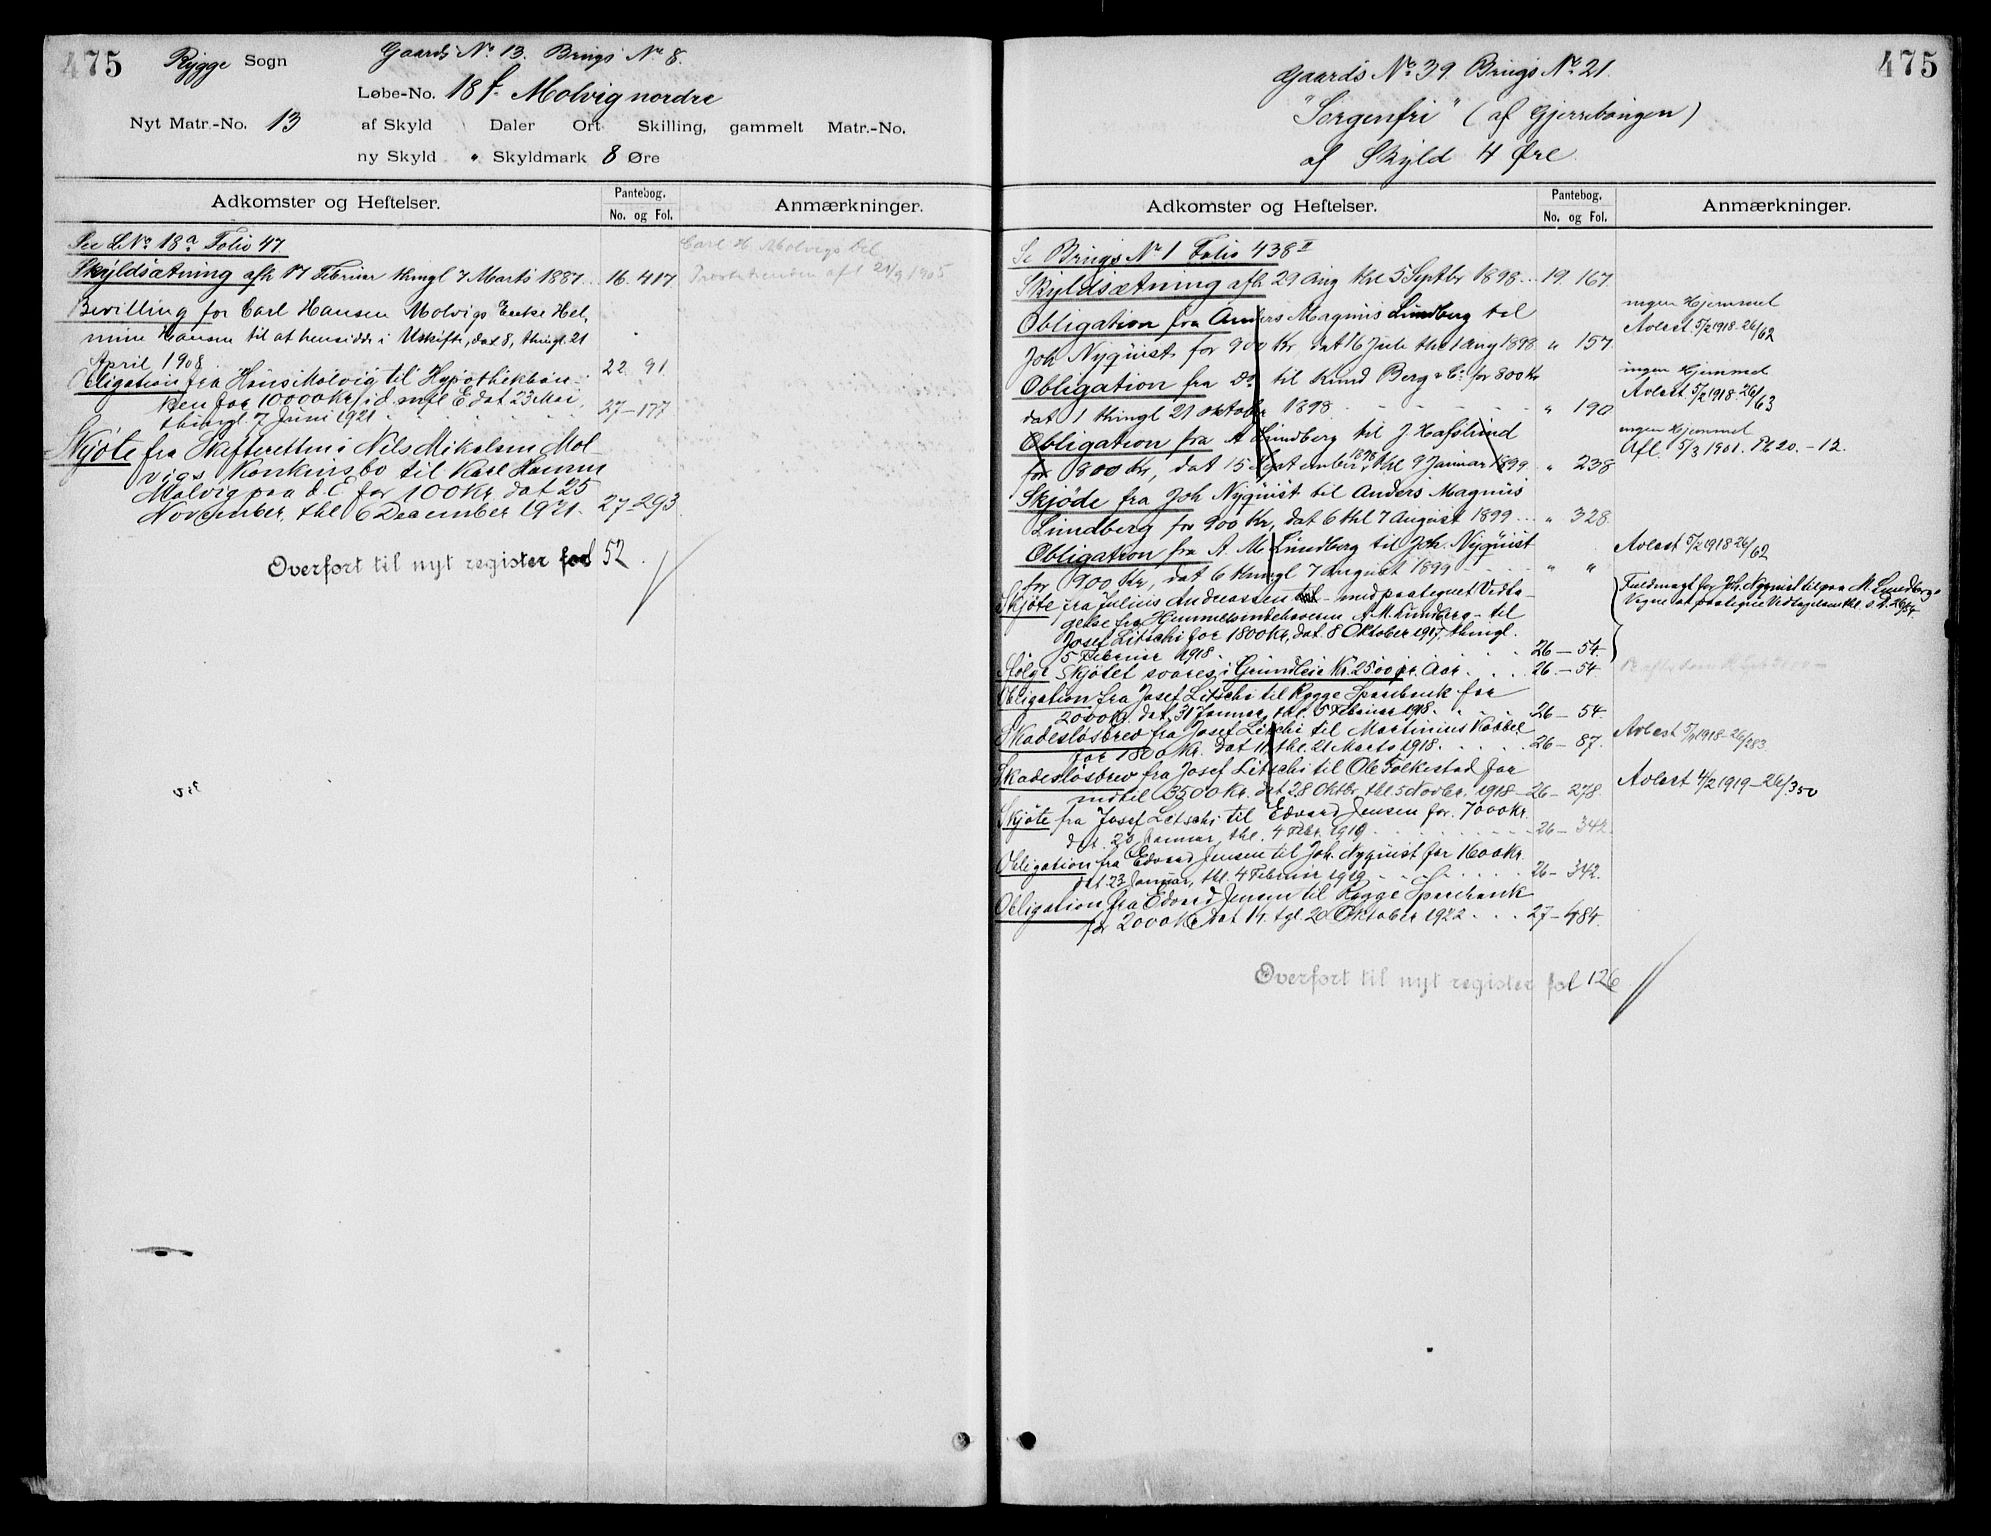 475
Rygge Sogn
Gaards No 13. Brugs No 8.
Løbe-No. 18 f. Molvig nordre
Nyt Matr.-No. 13 af Skyld Daler Ort Skilling, gammelt Matr.-No.
ny Skyld " Skyldmark 8 Øre
Adkomster og Heftelser.
Pantebog.
No. og Fol.
Anmærkninger.
See LNo 18a Folio 47
Skyldsætning afh 17 Februar thingl 7 Marts 1887. 16. 417
Bevilling for Carl Hansen Molvigs Enke Hel-
mine Hansen til at hensidde i Uskifte, dat 8, thingl. 21
April 1908 22. 91
Obligation fra Hans Molvig til Hypothekban-
ken for 10000 Kr, id mfl E dat 23 Mai,
thingl. 7 Juni 1921 27-177
Skjøte fra Skifteretten i Nils Mikalsen Mol-
vigs Konkursbo til Karl Hansen
Molvig paa d. E for 100 Kr. dat 25
November, thl 6 December 1921. 27-293
Carl H. Molvigs til
afl 21/9 1905
Overført til nyt register fol 52
475
Gaards No 39. Brugs No 21.
"Sorgenfri" (af Gjerrebøngen)
af Skyld 4 Øre
Adkomster og Heftelser.
Pantebog.
No. og Fol.
Anmærkninger.
Se Brugs No 1 Folio 438 II
Skyldsætning afh 29 Aug thl 5 Septbr 1898 .. 19. 167.
Obligation fra Anders Magnus Lundberg til
Joh Nyquist for 900 Kr, dat 16 Juli thl 1 Aug 1898 " 157
ingen Hjemmel
Avlest 5/2 1918-26/62
Obligation fra Do til Knud Berg & Co. for 800 Kr
dat 1 thingl 21 Oktober 1898. " 190
ingen Hjemmel
Avlest 5/2 1918-26/63
Obligation fra A Lundberg til J. Hafslund
for 800 Kr, dat 15 September 1898, thl 9 Januar 1899 " 238
ingen Hjemmel
Afl. 5/3 1901. Pb 20. - 12.
Skjøde fra Joh Nyquist til Anders Magnus
Lundberg for 900 Kr, dat 6 thl 7 August 1899 ... " 328.
Obligation fra A. M Lundberg til Joh. Nyquist
for 900 Kr, dat 6 thingl 7 August 1899 " "
Avlest 5/2 1918 26/62
Skjøte fra Julius Andreassen - med paategnet Vedta-
gelse fra Hjemmelsindehaveren A. M. Lundberg - til
Josef Litschi for 1800 Kr, dat 8 Oktober 1917, thingl.
5 Februar 1918 26-54.
Fuldmagt for Joh. Nyquist til paa M Lundbergs
Vegne at paategne Vedtagelsen thl. s. d. 26/54.
Ifølge Skjøtet svares i Grundleie Kr. 25 00 pr. Aar . . . 26-54.
Obligation fra Josef Litschi til Rygge Sparebank for
2000 Kr. dat. 31 Januar, thl. 5 Februar 1918. 26-54.
Skadesløsbrev fra Josef Litschi til Martinius Kabbel
for 1800 Kr. dat 11, thl. 21 Marts 1918. 26-87.
Avlest 5/11 1918-26/283.
Skadesløsbrev fra Josef Litschi til Ole Folkestad for
indtil 3500 Kr. dat 28 Oktbr. thl. 5 Novbr. 1918 26-278.
Avlest 4/2 1919-26/350
Skjøte fra Josef Litschi til Edvard Jensen for. 7000 Kr.
dat. 23 Januar, thl. 4 Febr. 1919 26-342.
Obligation fra Edvard Jensen til Joh. Nyquist for 1600 Kr.
dat. 23 Januar, thl. 4 Februar 1919 26-342.
Obligation fra Edvard Jensen til Rygge Sparebank
for 2000 Kr dat 14. tgl 20 Oktober 1922 . . . 27-484.
Overført til nyt register fol 126